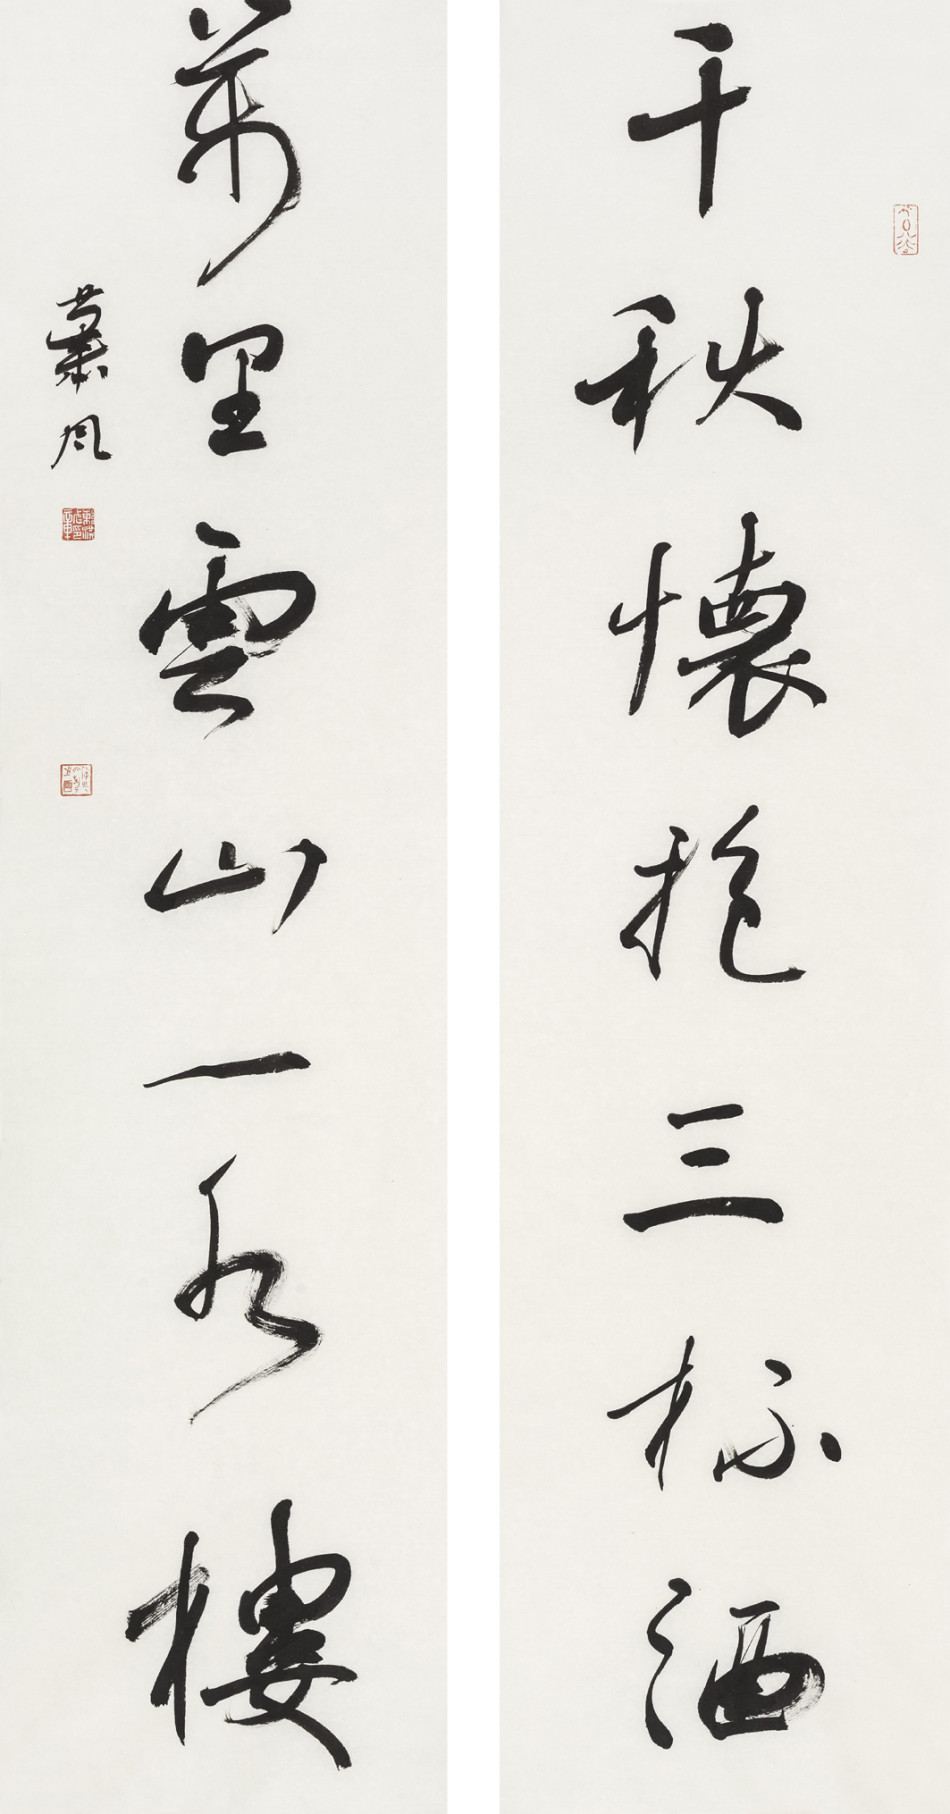 千秋懷抱三杯酒
萬里雲山一水樓
蕭風